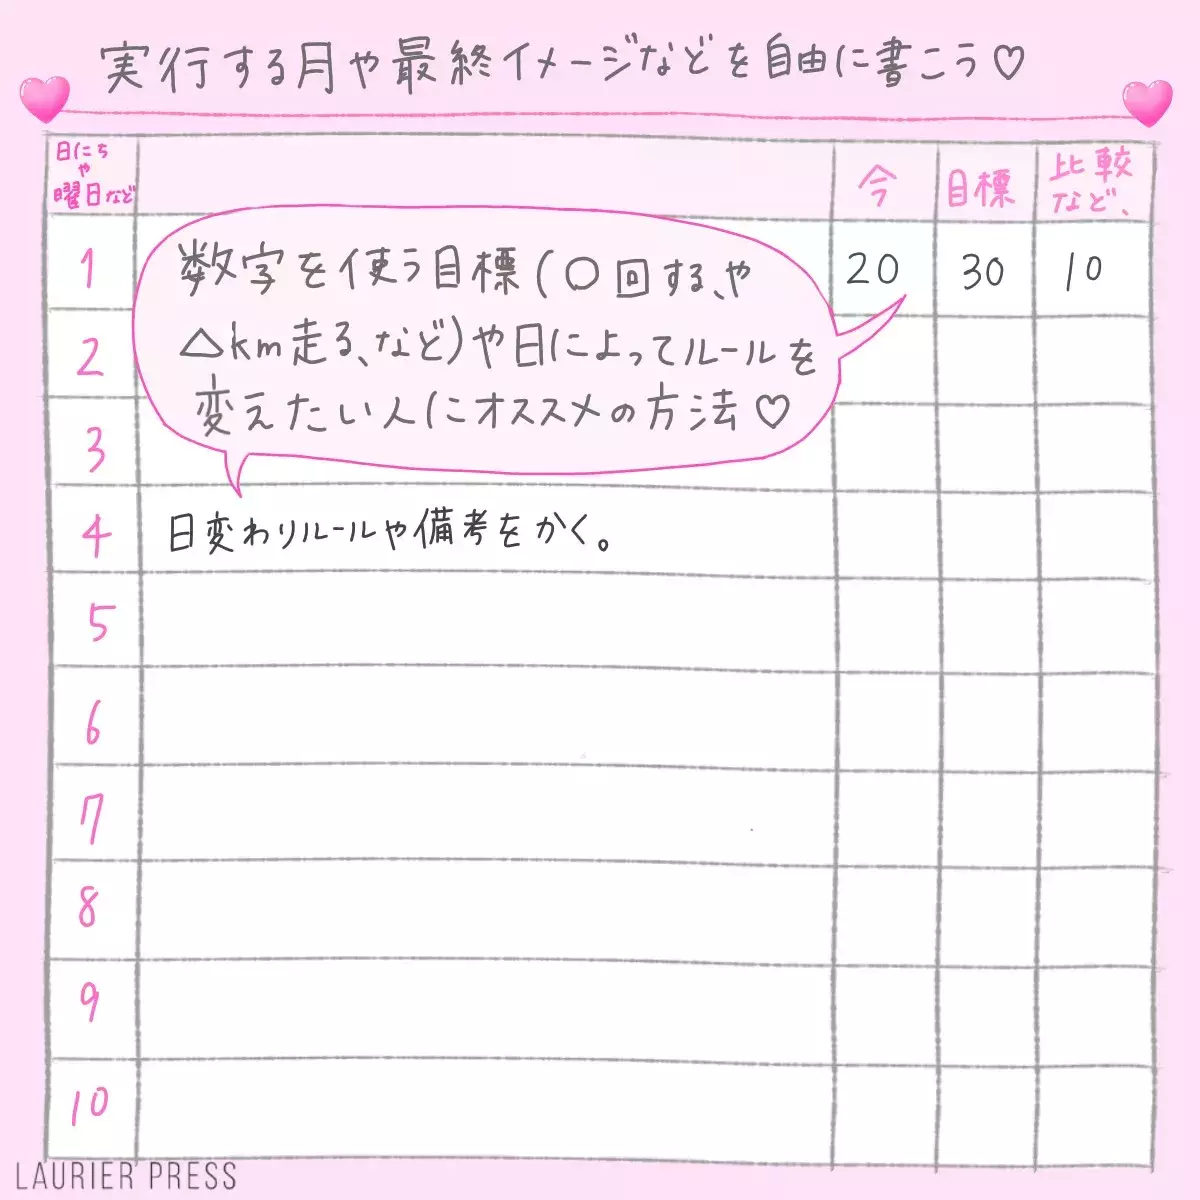 実行する月や最終イメージなどを自由に書こう♡
日にち
や
曜日など
今
目標
比較
など、
1
数字を使う目標(〇回する、や
△km走る、など)や日によってルールを
変えたい人にオススメの方法♡
20
30
10
2
3
4
日変わりルールや備考をかく。
5
6
7
8
9
10
LAURIER PRESS